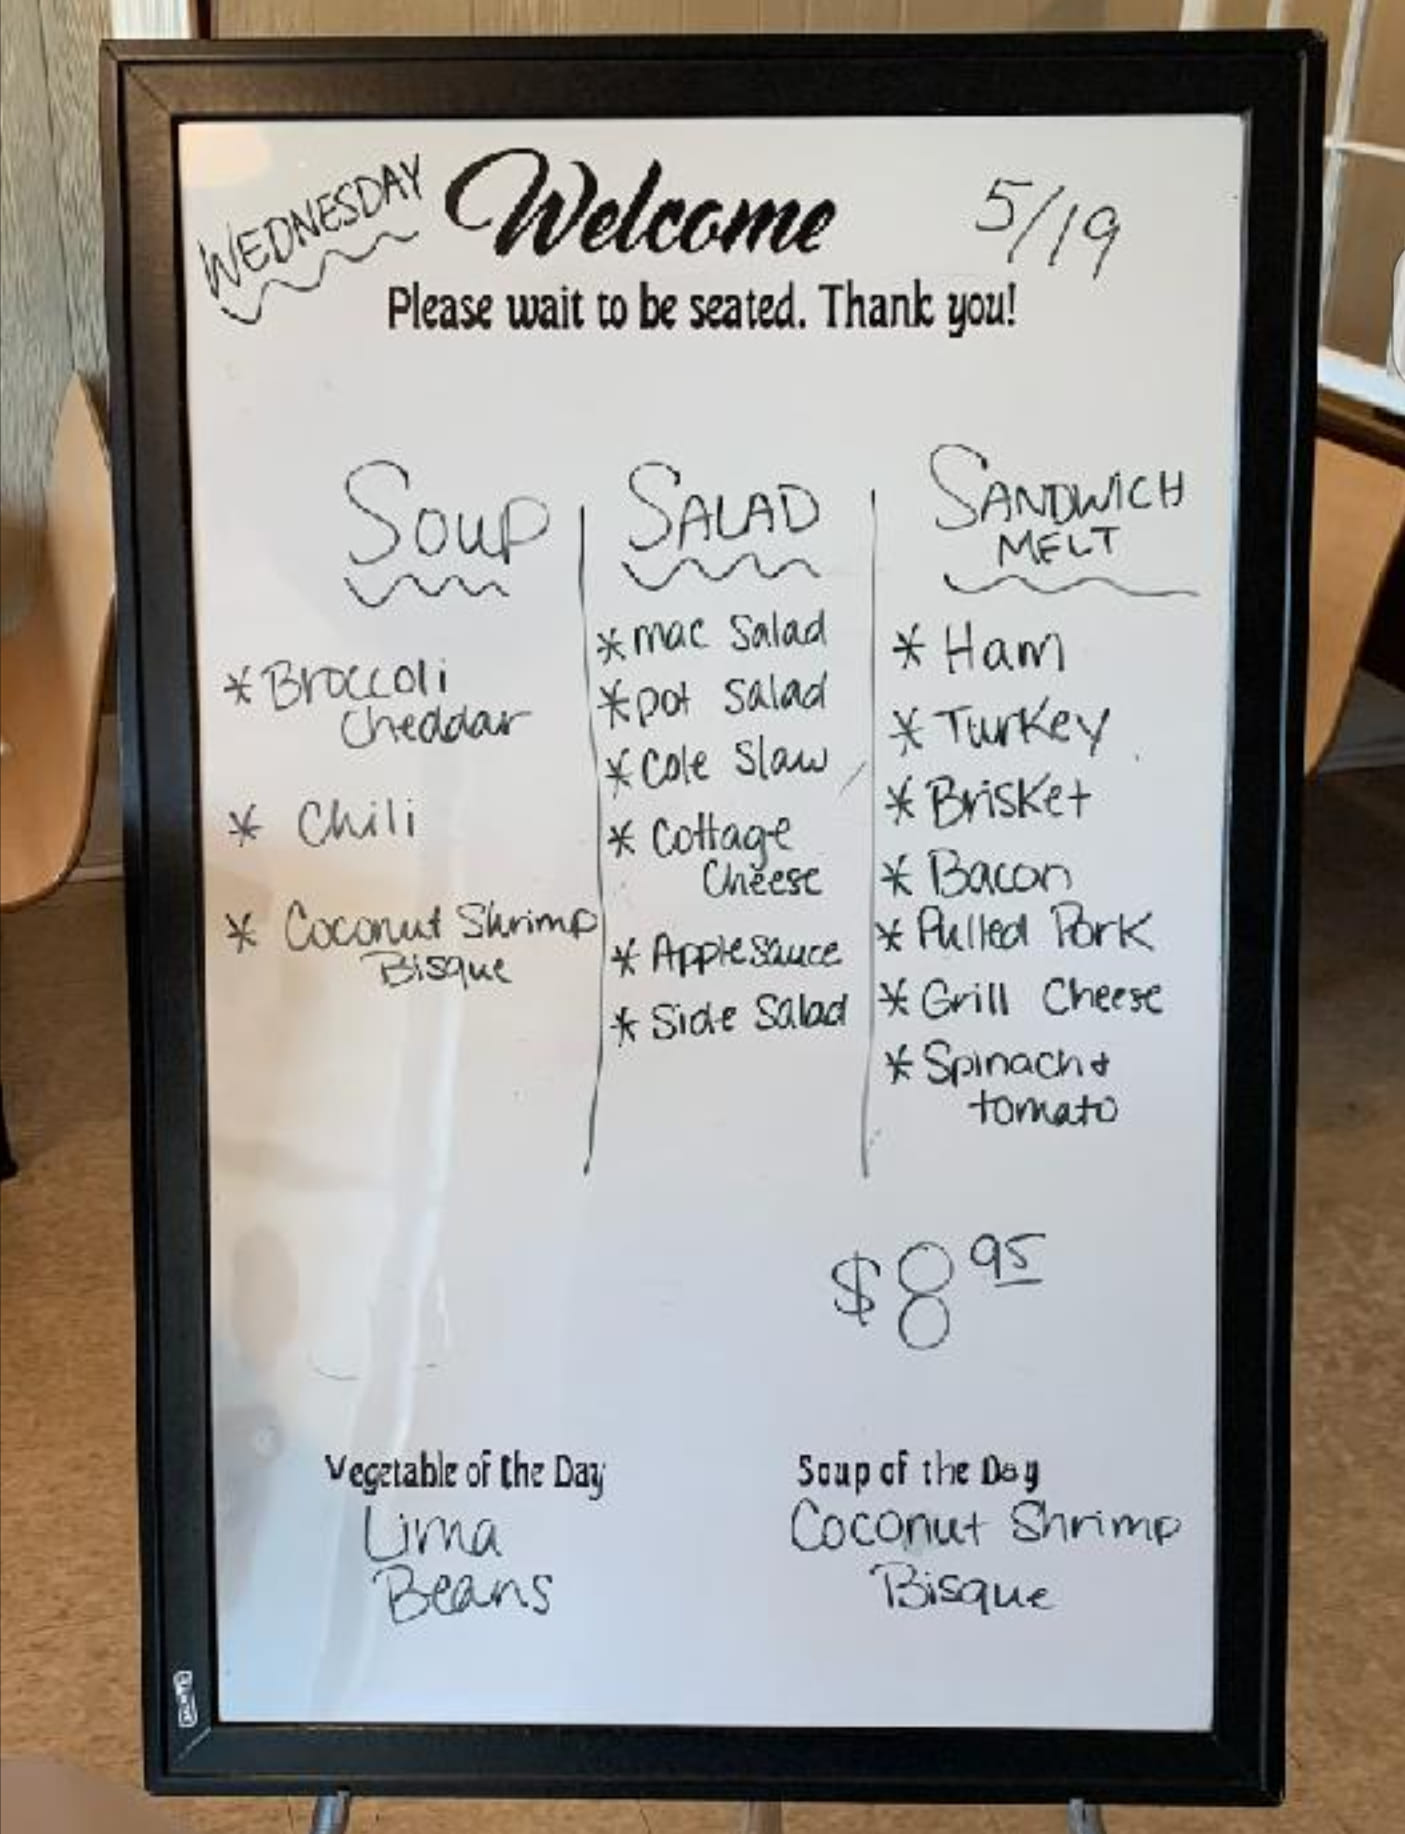 WEDNESDAY
Welcome
5/19
Please wait to be seated. Thank you!
SOUP
* Broccoli
Cheddar
* Chili
* Coconut Shrimp
Bisque
SALAD
* mac Salad
* pot Salad
* Cole Slaw
* Cottage
Cheese
* Applesauce
* Side Salad
SANDWICH
MELT
* Ham
* Turkey
* Brisket
* Bacon
* Pulled Pork
* Grill Cheese
* Spinach +
tomato
$8 95
Vegetable of the Day
Lima
Beans
Soup of the Day
Coconut Shrimp
Bisque